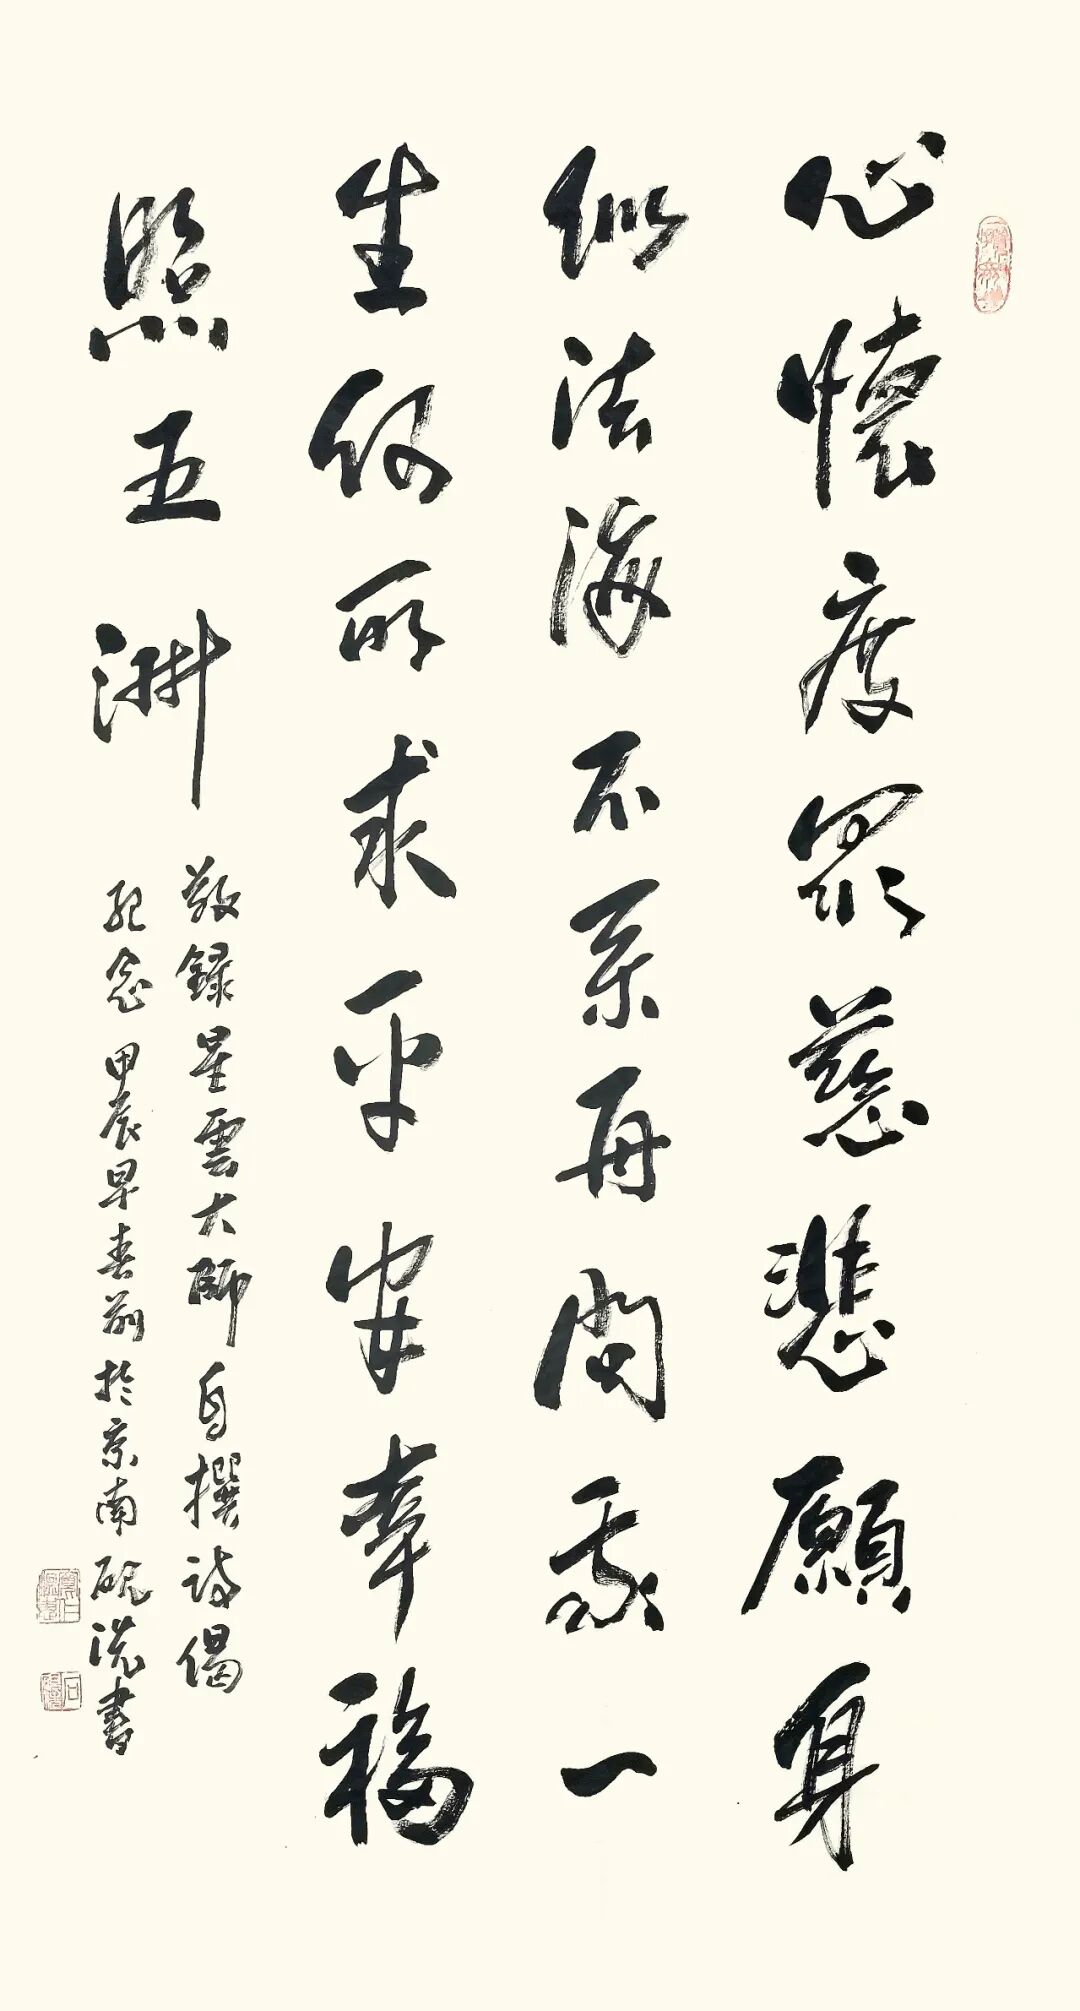 心懷度眾慈悲願身
似法海不系舟問我一
生何所求平安幸福
照五洲
敬錄星雲大師自撰詩偈
紀念甲辰早春前於京南硯浣書